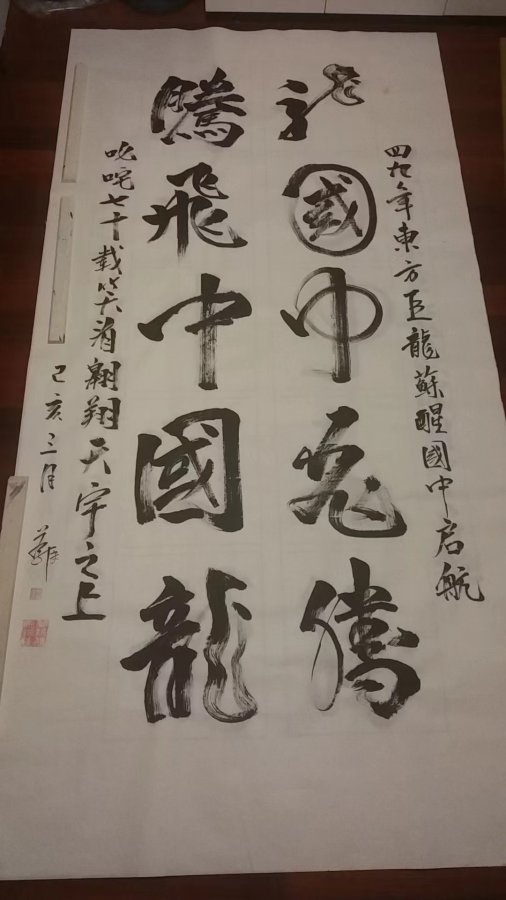 四九年東方巨龍蘇醒國中启航
龍國中飛騰
騰飛中國龍
叱咤七十載笑看翱翔天宇之上
己亥三月